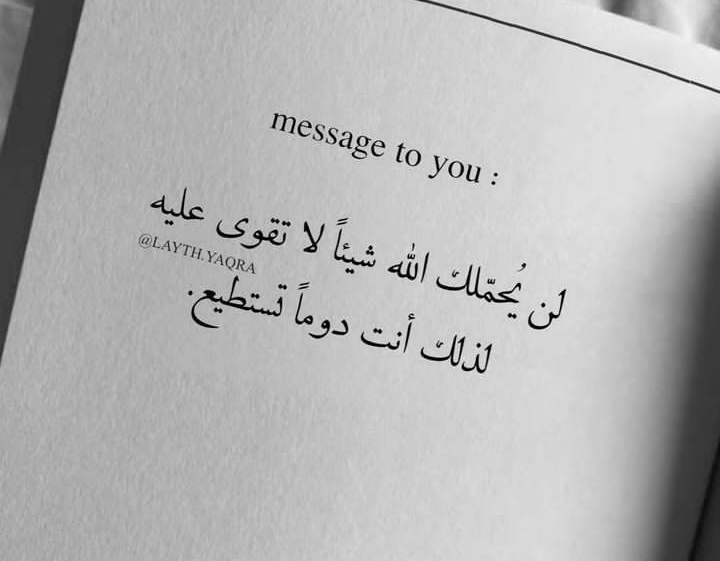 message to you :
لن يُحمّلك الله شيئاً لا تقوى عليه
@LAYTH.YAQRA
لذلك أنت دوماً تستطيع.